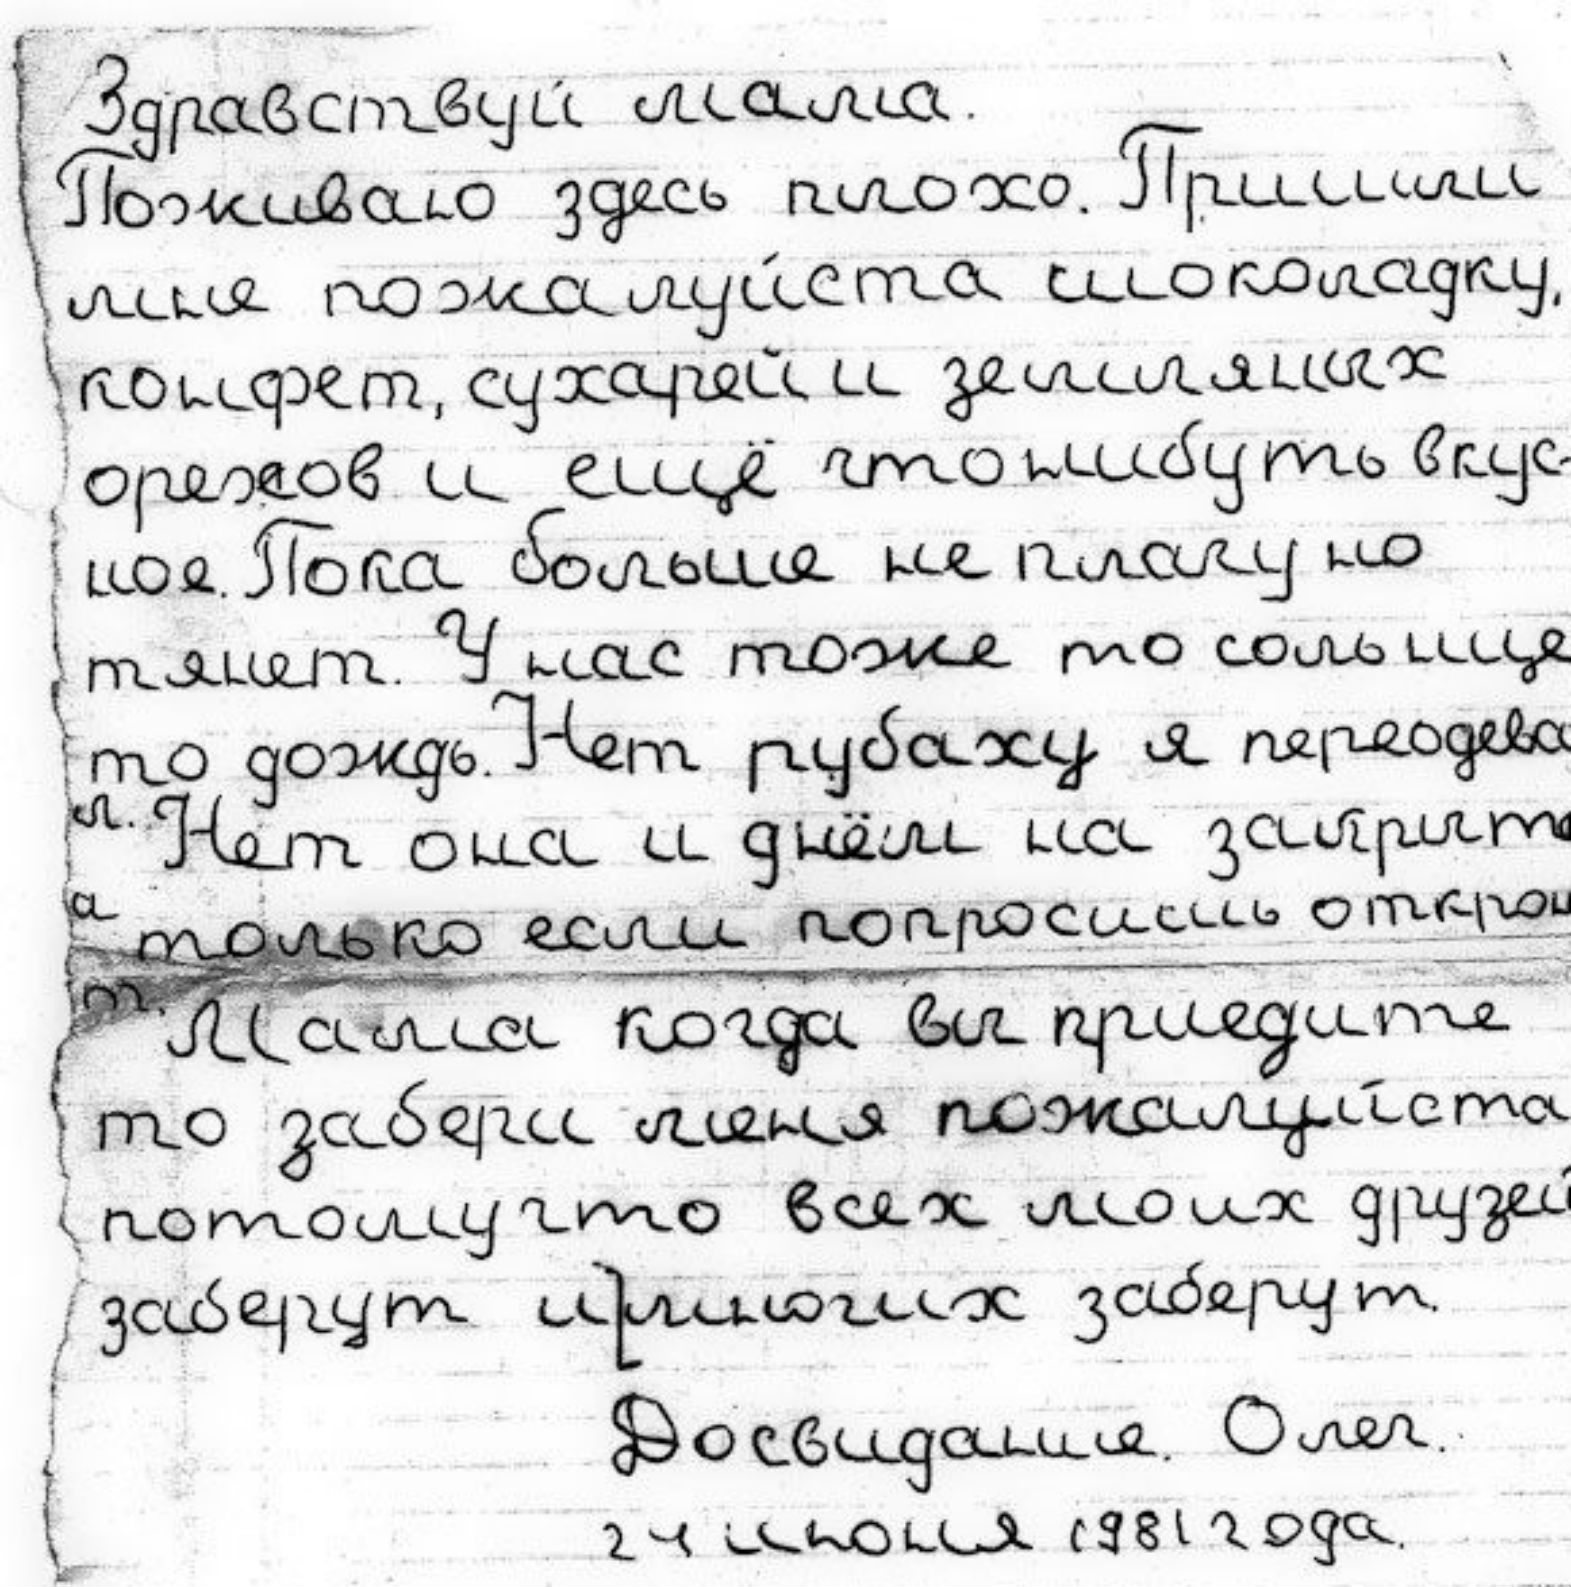 Здравствуй мама.
Поживаю здесь плохо. Пришли
мне пожалуйста шоколадку,
конфет, сухарей и земляных
орехов и ещё чтонибуть вкус-
ное. Пока больше не плачу но
тянет. У нас тоже то солнце
то дождь. Нет рубаху я переодева
л. Нет она и днём на закрыто
а только если попросишь открою
т. Мама когда вы приедите
то забери меня пожалуйста
потомучто всех моих друзей
заберут и многих заберут.
Досвидание. Олег.
24 июня 1981 года.